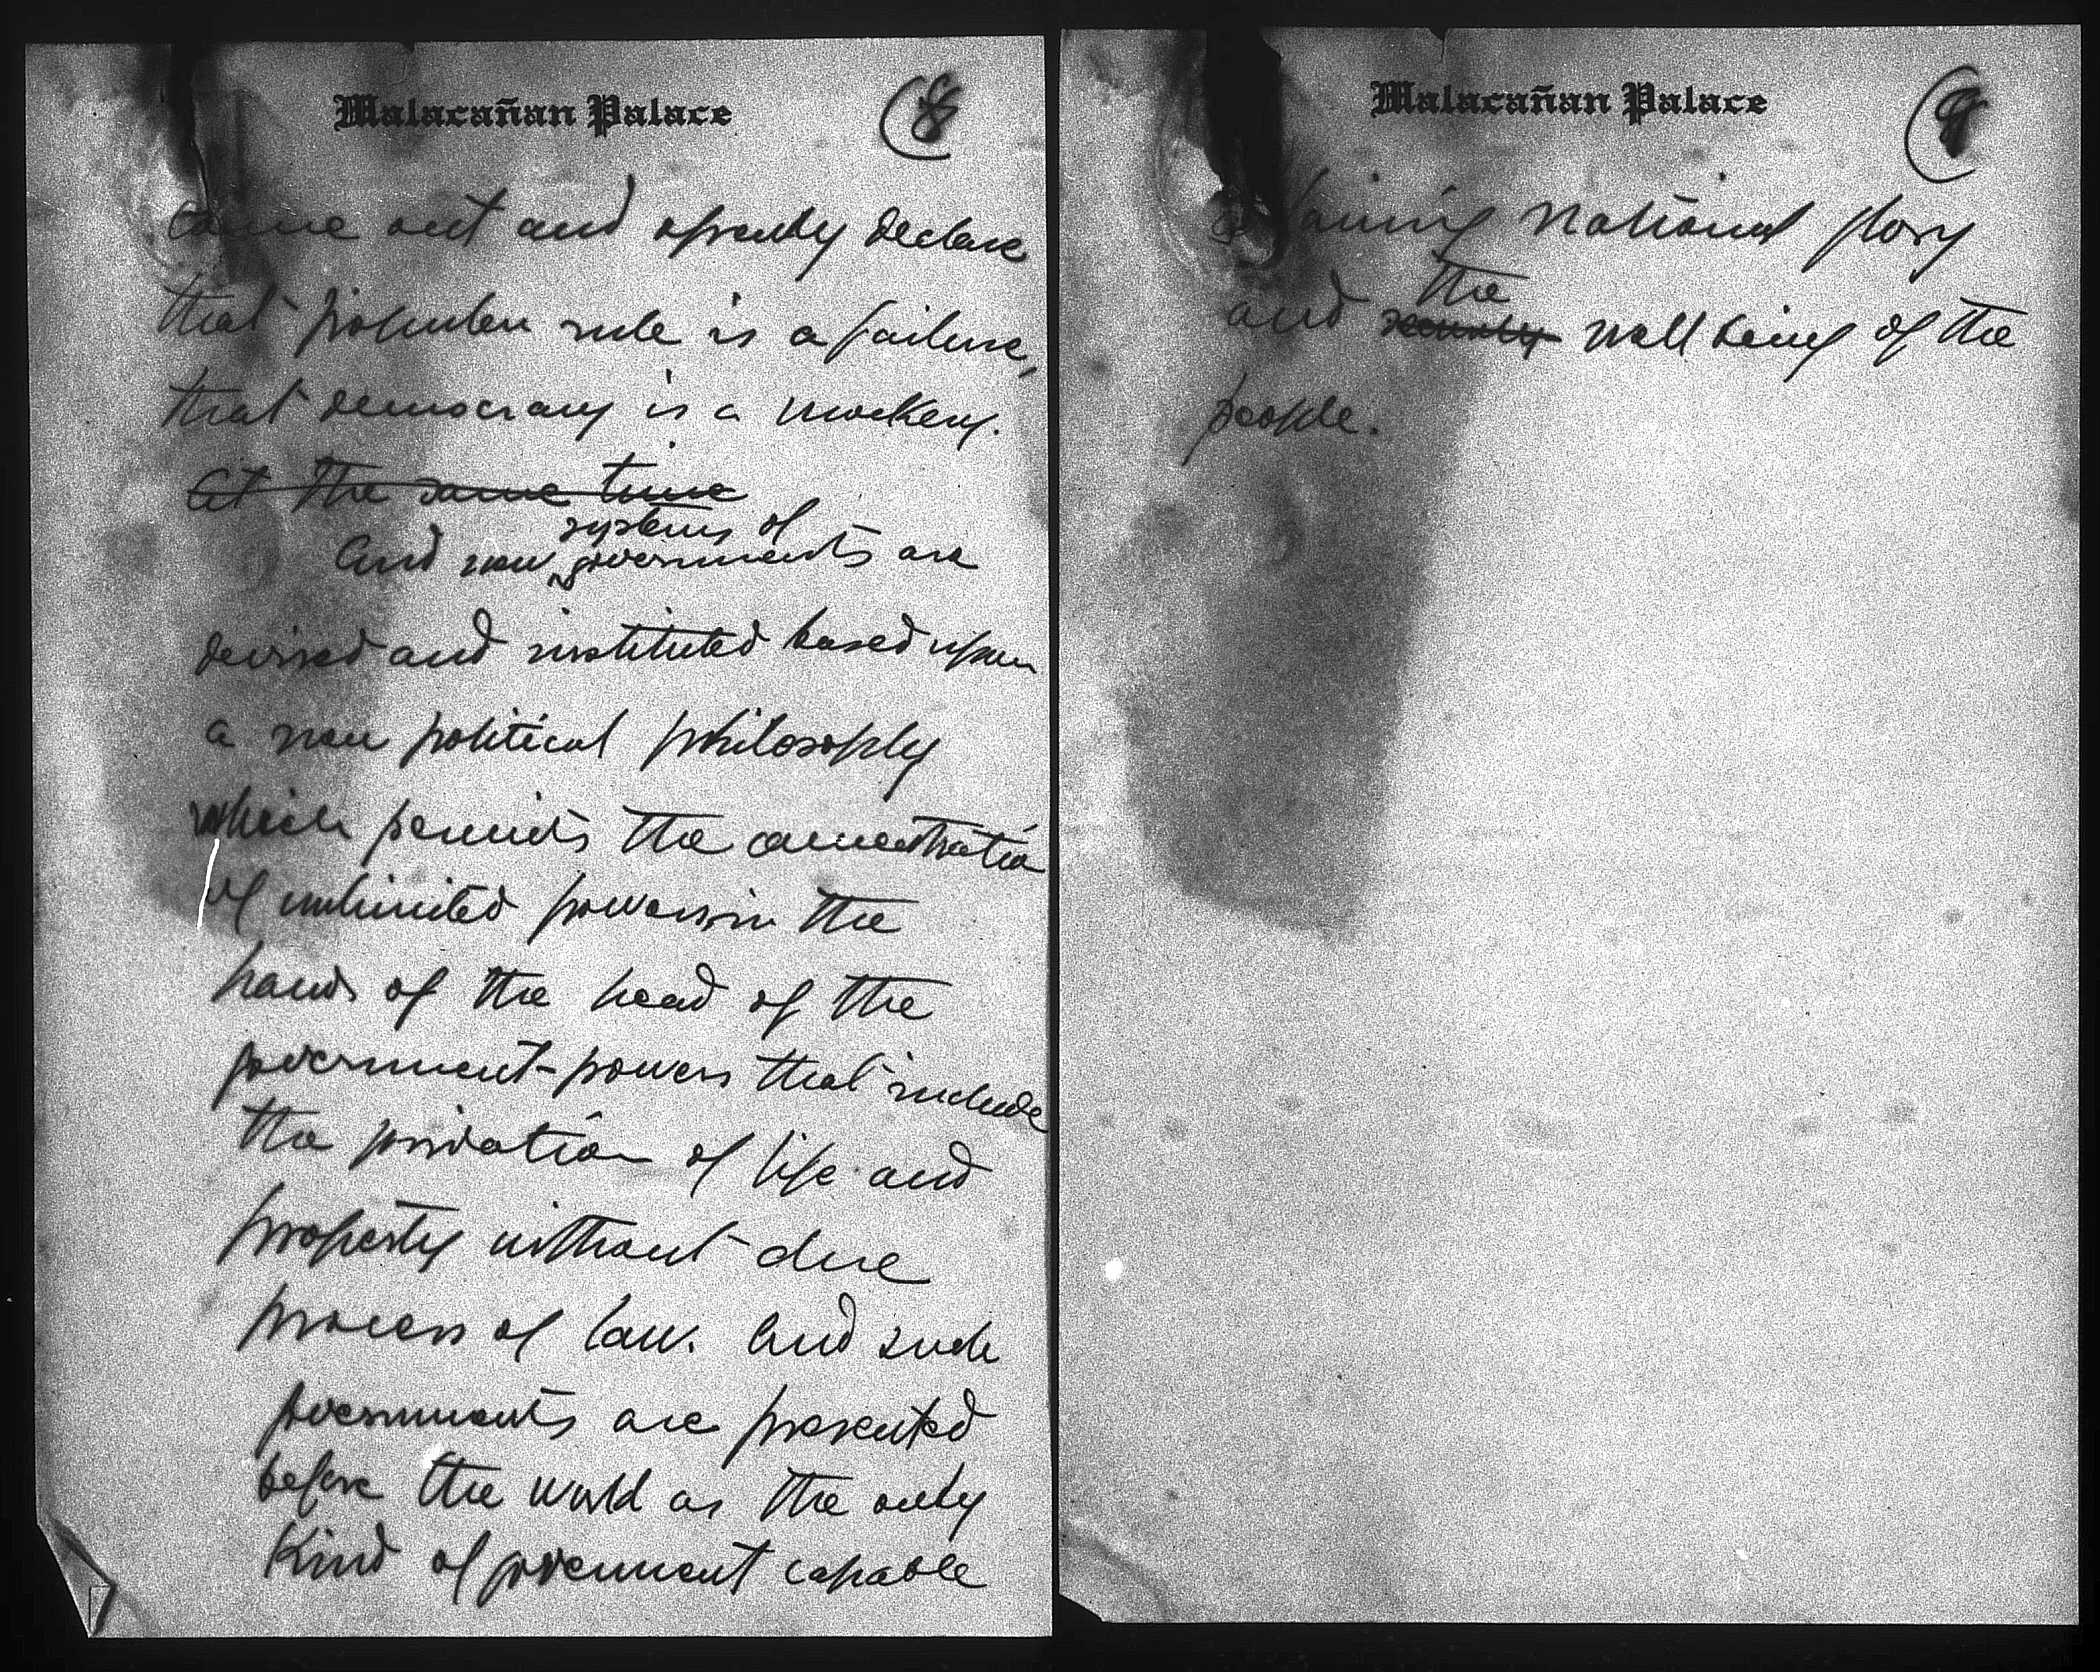 Malacañan Palace
8
come out and openly declare
that popular rule is a failure,
that democracy is a mockery.
At the same time
systems of
And new governments are
devised and instituted based upon
a new political philosophy
which permits the concentration
of unlimited powers in the
hands of the head of the
government - powers that include
the privation of life and
property without due
process of law. And such
governments are presented
before the world as the only
Kind of government capable
Malacañan Palace
9
national glory
the
and security well being of the
people.